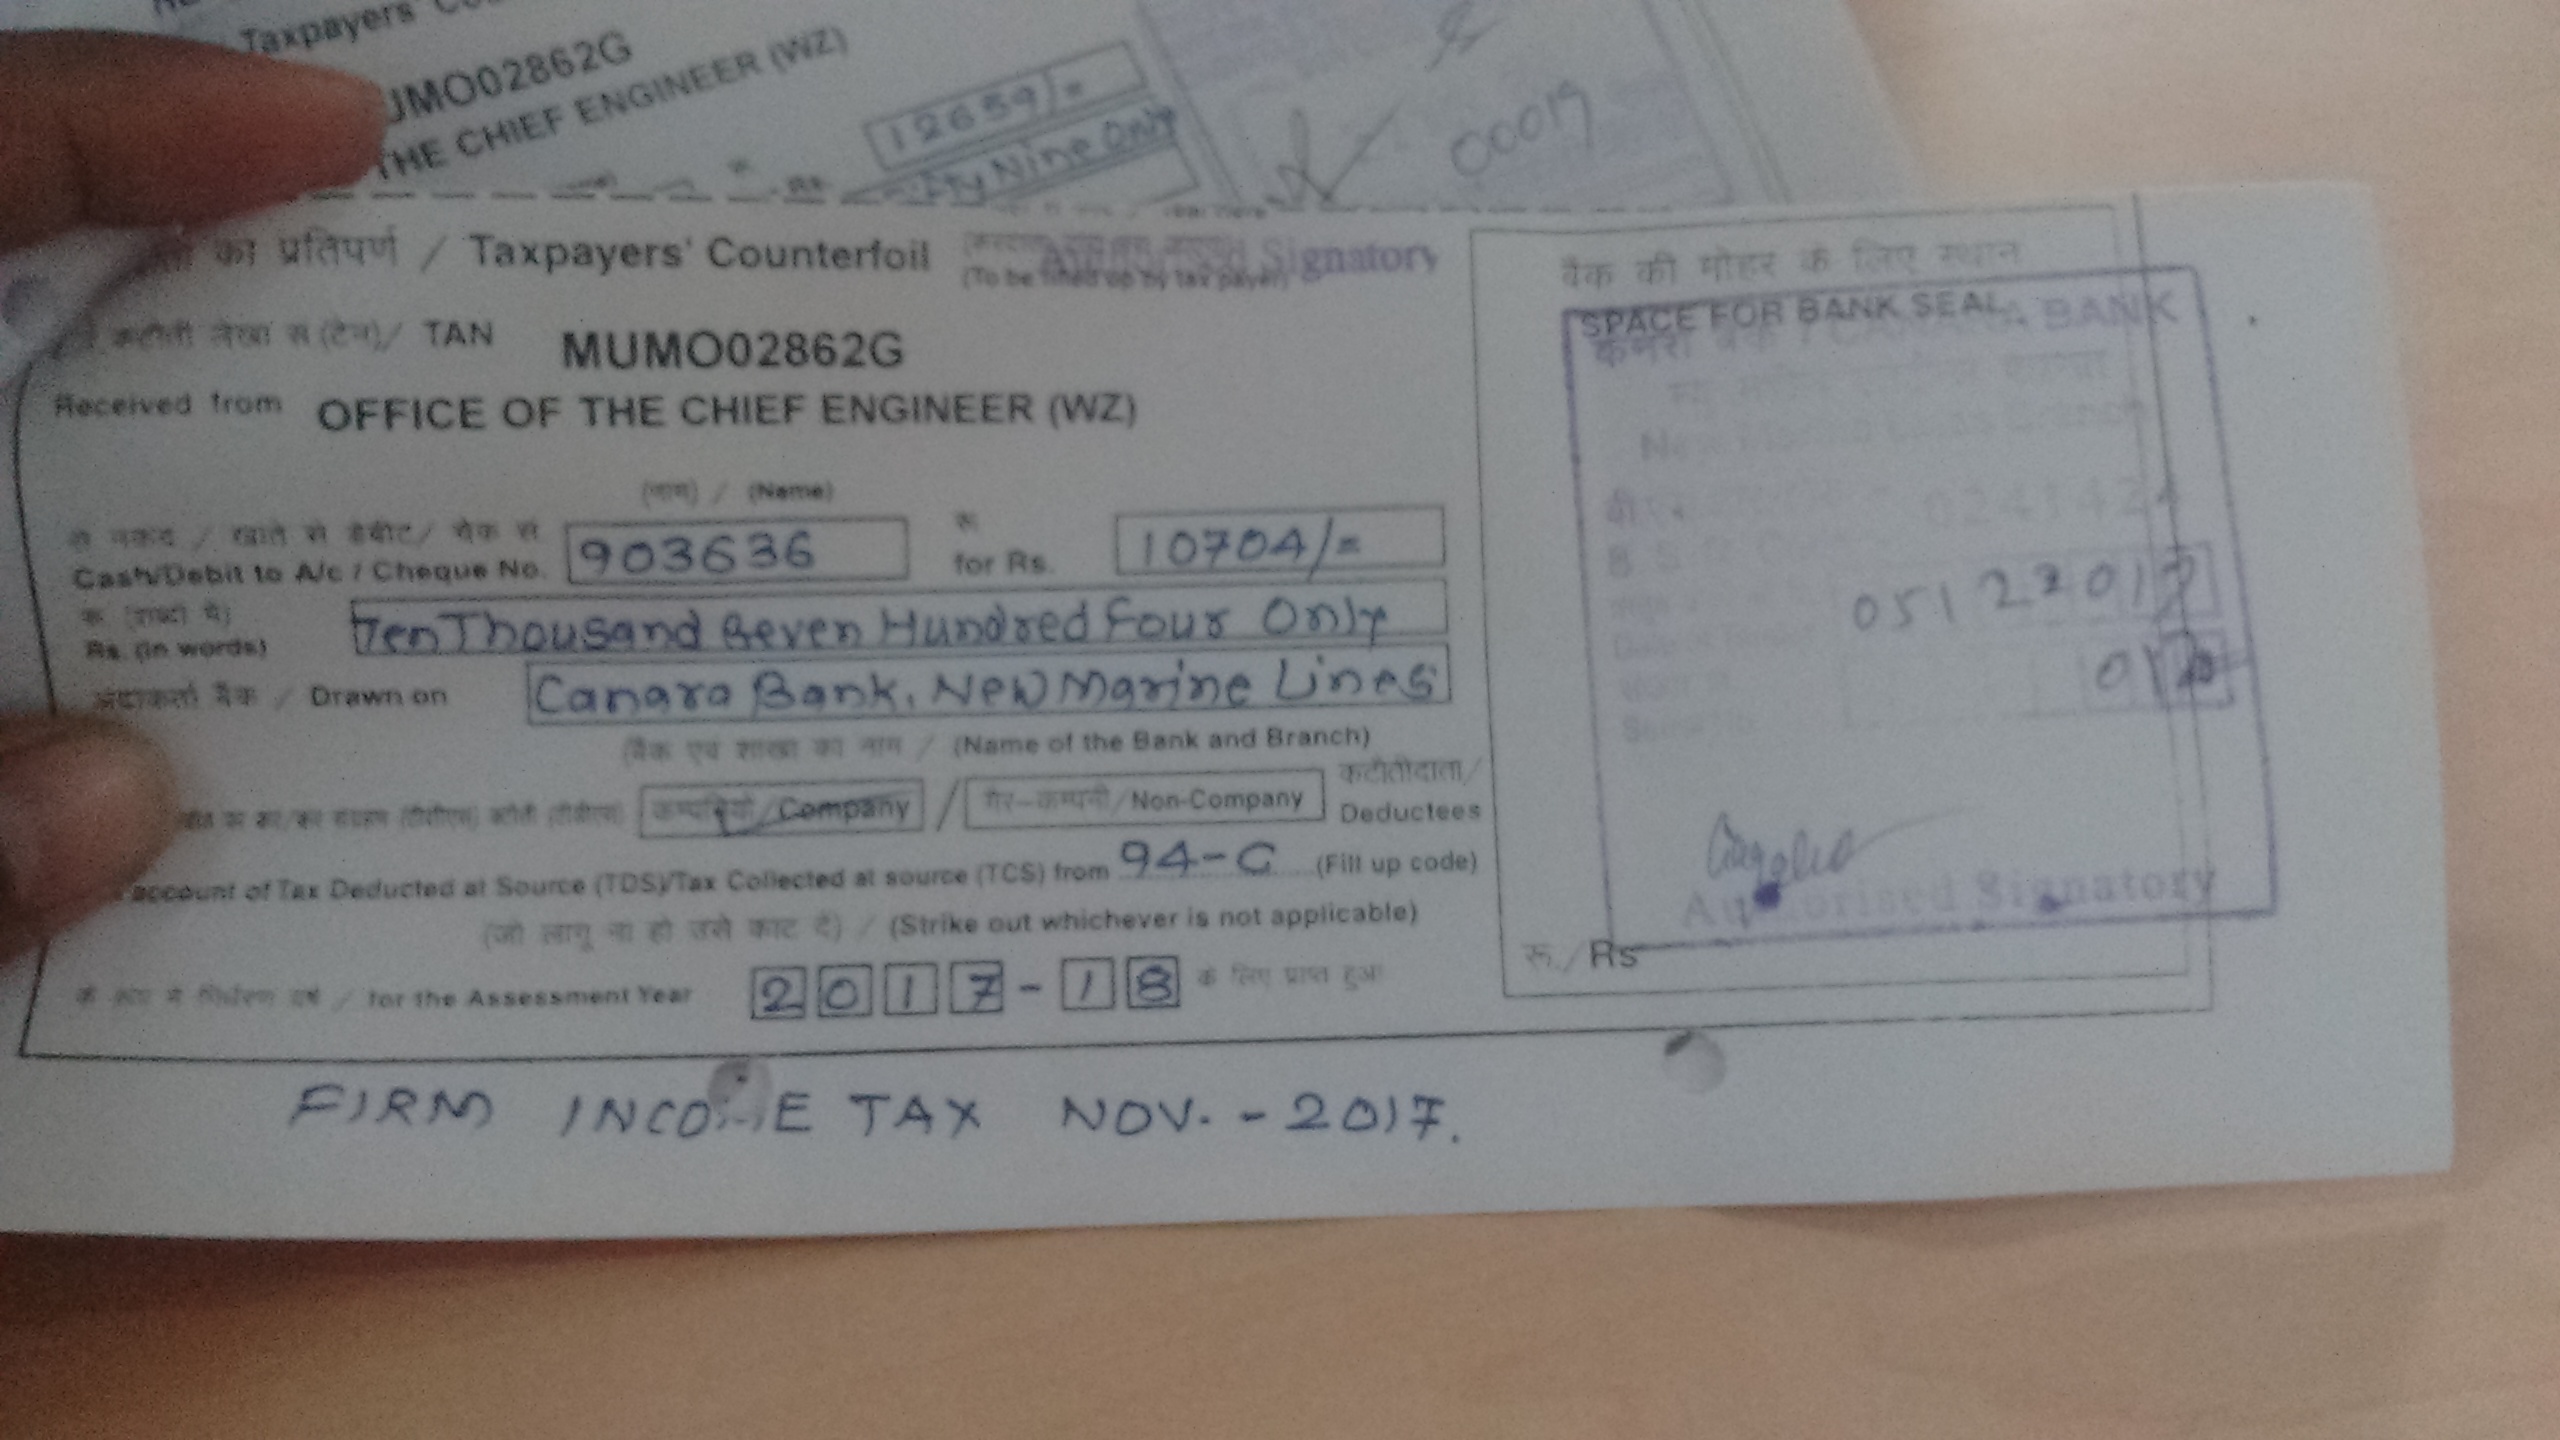 Taxpayers'
UMO02862G
THE CHIEF ENGINEER (WZ)
12659/=
Fifty Nine Only
00019
का प्रतिपर्ण / Taxpayers' Counterfoil (To be filled up by tax payer) Authorised Signatory
कटौती लेखा सं (टेन)/ TAN MUMO02862G
Received from OFFICE OF THE CHIEF ENGINEER (WZ)
(नाम) / (Name)
से नकद / खाते से डेबीट/ चेक सं
Cash/Debit to A/c / Cheque No. 903636 रू for Rs. 10704/=
रू (शब्दों में)
Rs. (in words) Ten Thousand Seven Hundred Four Only
अदाकर्ता बैंक / Drawn on Canara Bank, New Marine Lines
(बैंक एवं शाखा का नाम / (Name of the Bank and Branch)
कम्पनियों/Company / गैर-कम्पनी/Non-Company कटौतीदाता/
Deductees
account of Tax Deducted at Source (TDS)/Tax Collected at source (TCS) from 94-C (Fill up code)
(जो लागू ना हो उसे काट दे) / (Strike out whichever is not applicable)
के रूप में निर्धारण वर्ष / for the Assessment Year 2017-18 के लिए प्राप्त हुआ
बैंक की मोहर के लिए स्थान
SPACE FOR BANK SEAL
केनरा बैंक / CANARA BANK
New Marine Lines Branch
05122017
Authorised Signatory
रू./Rs
FIRM INCOME TAX NOV. - 2017.